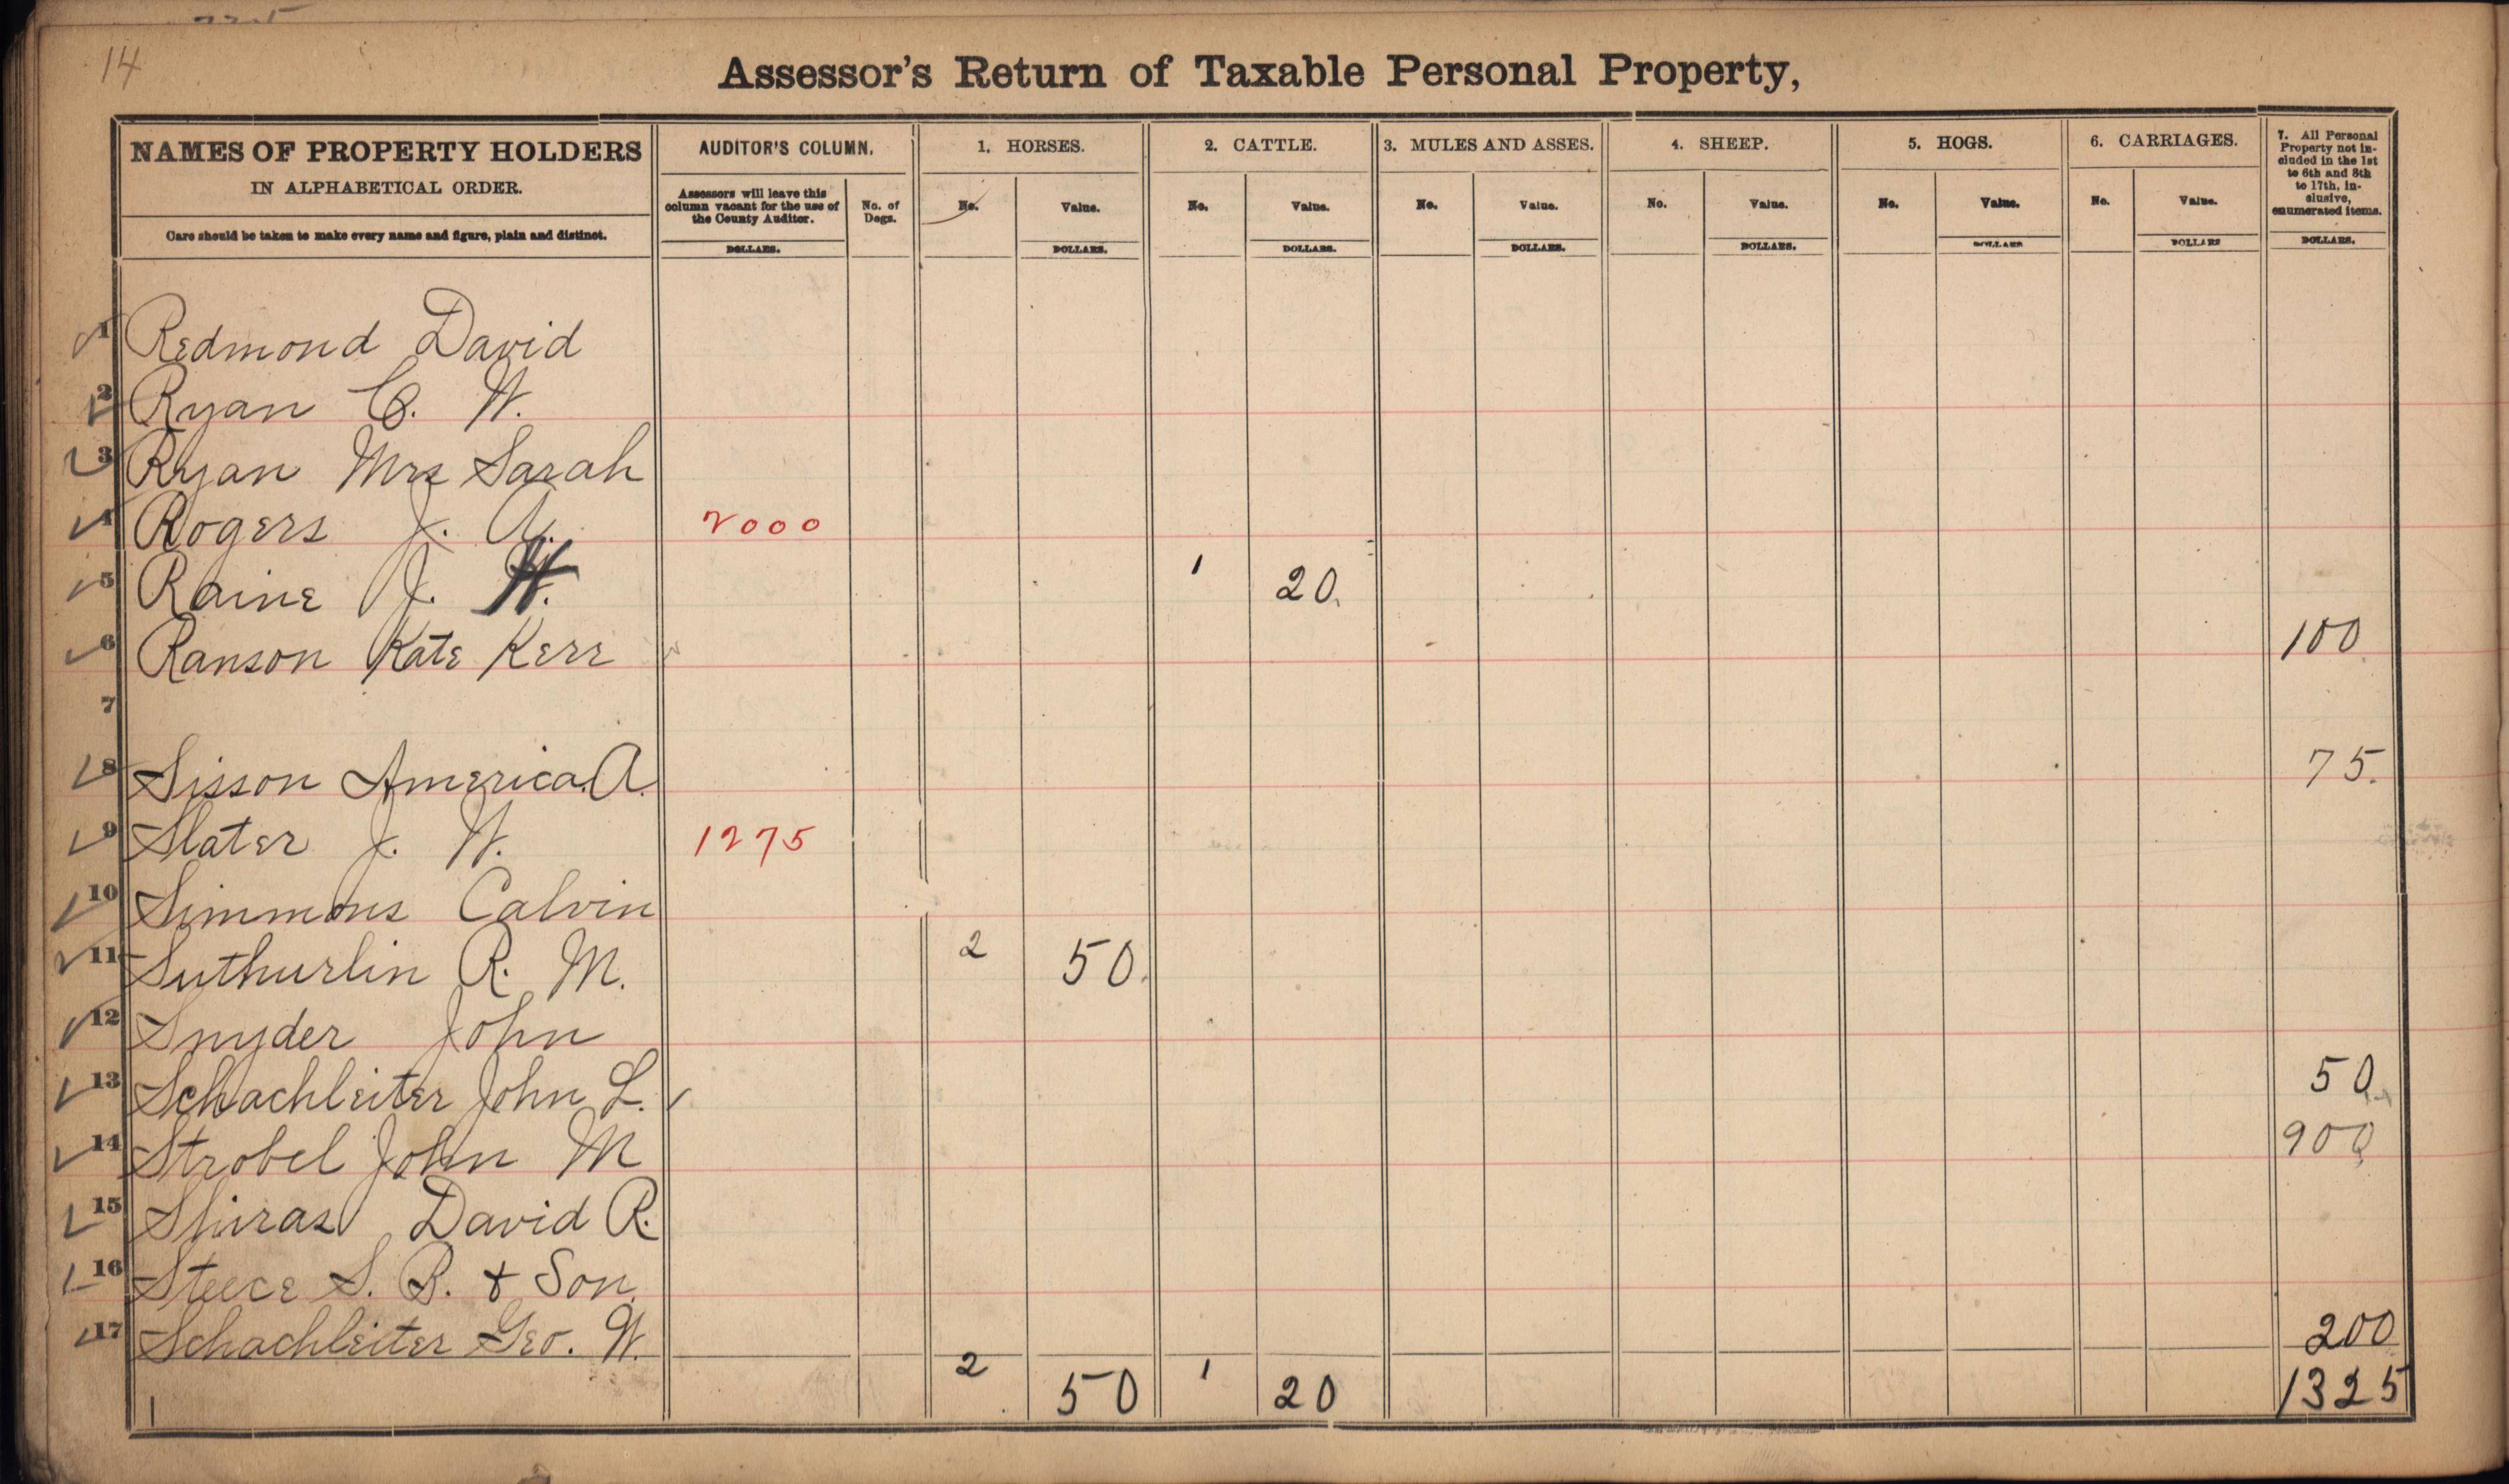 14
Assessor's Return of Taxable Personal Property,
NAMES OF PROPERTY HOLDERS
IN ALPHABETICAL ORDER.
Care should be taken to make every name and figure, plain and distinct.
AUDITOR'S COLUMN.
Assessors will leave this column vacant for the use of the County Auditor.
DOLLARS.
No. of Dogs.
1. HORSES.
No. Value.
DOLLARS.
2. CATTLE.
No. Value.
DOLLARS.
3. MULES AND ASSES.
No. Value.
DOLLARS.
4. SHEEP.
No. Value.
DOLLARS.
5. HOGS.
No. Value.
DOLLARS
6. CARRIAGES.
No. Value.
DOLLARS
7. All Personal
Property not in-
cluded in the 1st
to 6th and 8th
to 17th, in-
clusive,
enumerated items.
DOLLARS.
1 Redmond David
2 Ryan C. W.
3 Ryan Mrs Sarah
4 Rogers J. A. 2000
5 Raine J. W. 1 20.
6 Ranson Kate Kerr 100
7
8 Sisson America A. 75.
9 Slater J. W. 1275
10 Simmons Calvin
11 Suthurlin R. M. 2 50.
12 Snyder John
13 Schachleiter John L. 50
14 Strobel John M 900
15 Shiras David R.
16 Steece S. B. & Son
17 Schachleiter Geo. W. 200
2 50 1 20 1325